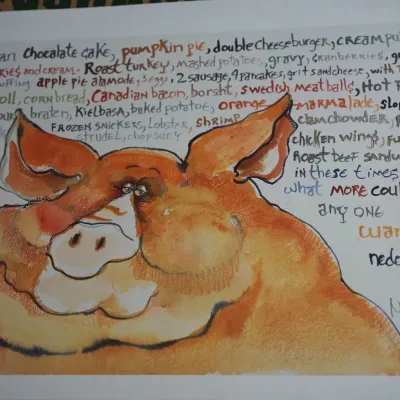 an Chocolate cake, pumpkin pie, double cheeseburger, cream pu
ries and cream. Roast turkey, mashed potatoes, gravy, cranberries,
uffing apple pie alamode, 3 eggs, 2 sausage, 9 pancakes, grits and cheese, with
oll, corn bread, Canadian bacon, borsht, swedish meat balls, Hot
braten, Kielbasa, baked potato, orange marmalade, slop
Frozen snickers, Lobster, shrimp clam chowder,
strudel, chop suey chicken wing, fu
Roast beef sandw
in these times
what more cou
any one
wan